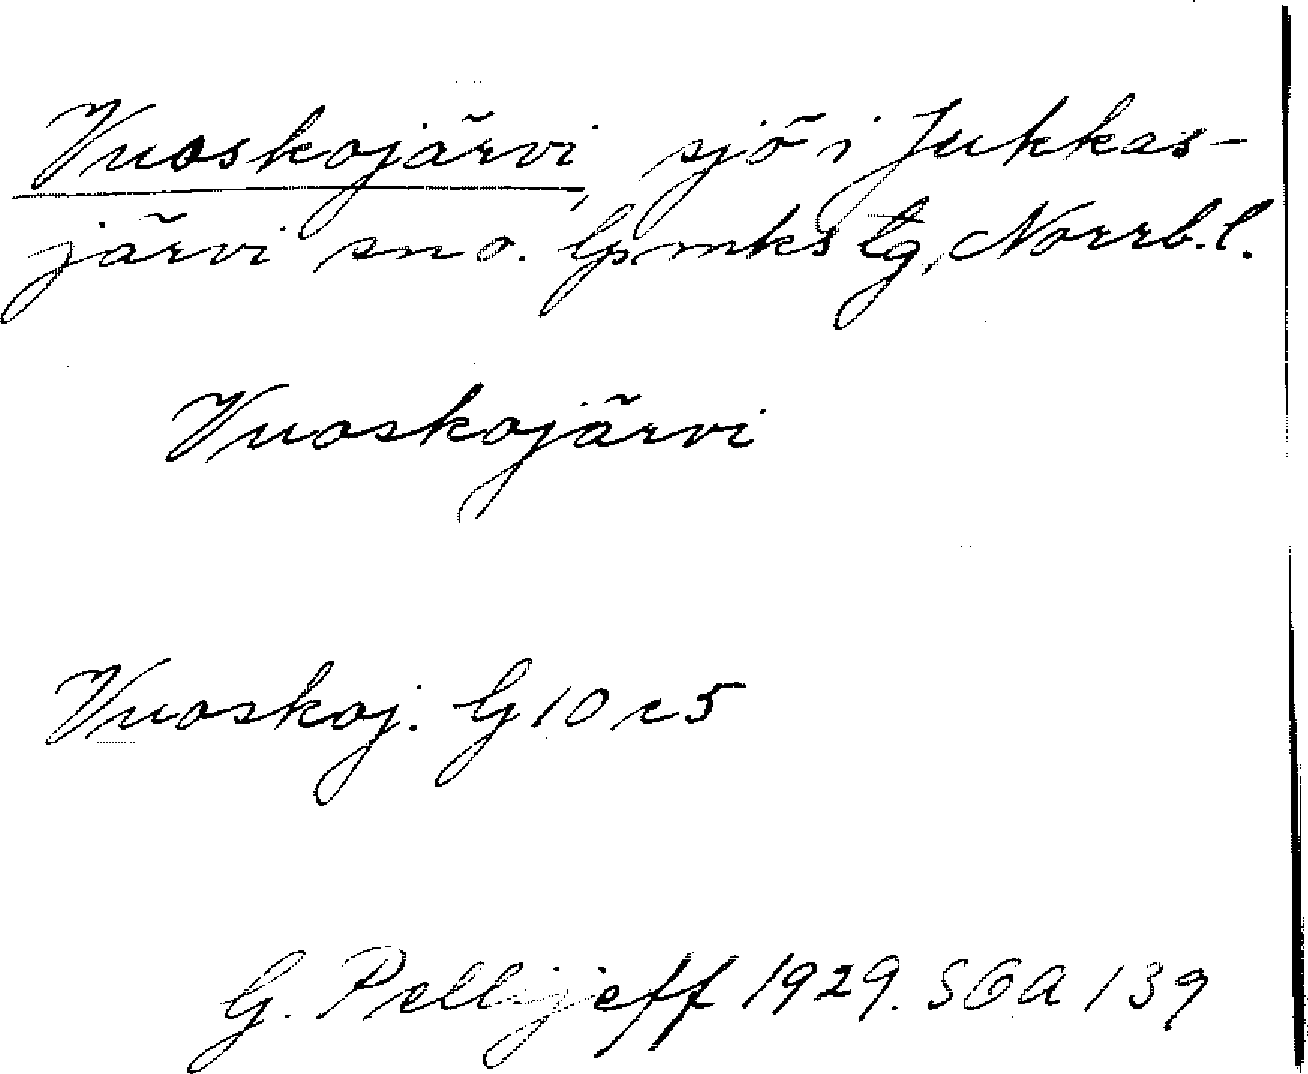 Vuoskojärvi, sjö i Jukkas-
järvi sn o. Gvmks tg, Norrb.l.
Vuoskojärvi
Vuoskoj. G 10 c5
G. Pellijeff 1929. SOA 139